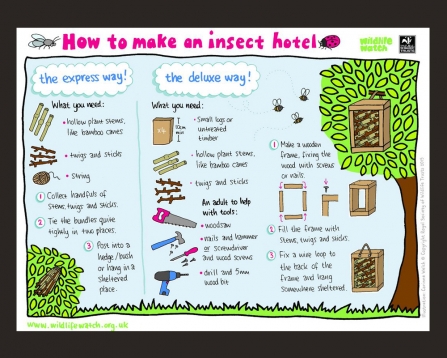 How to make an insect hotel
wildlife
watch
the express way!
What you need:
• hollow plant stems,
like bamboo canes
• twigs and sticks
• string
1 Collect handfuls of
stems, twigs and sticks.
2 Tie the bundles quite
tightly in two places.
3 Post into a
hedge/bush
or hang in a
sheltered
place.
the deluxe way!
What you need:
10cm
min
• Small logs or
untreated
timber
• hollow plant stems,
like bamboo canes
• twigs and sticks
An adult to help
with tools:
• woodsaw
• nails and hammer
or screwdriver
and wood screws
• drill and 5mm
wood bit
1 Make a wooden
frame, fixing the
wood with screws
or nails.
2 Fill the frame with
stems, twigs and sticks.
3 Fix a wire loop to
the back of the
frame and hang
somewhere sheltered.
www.wildlifewatch.org.uk